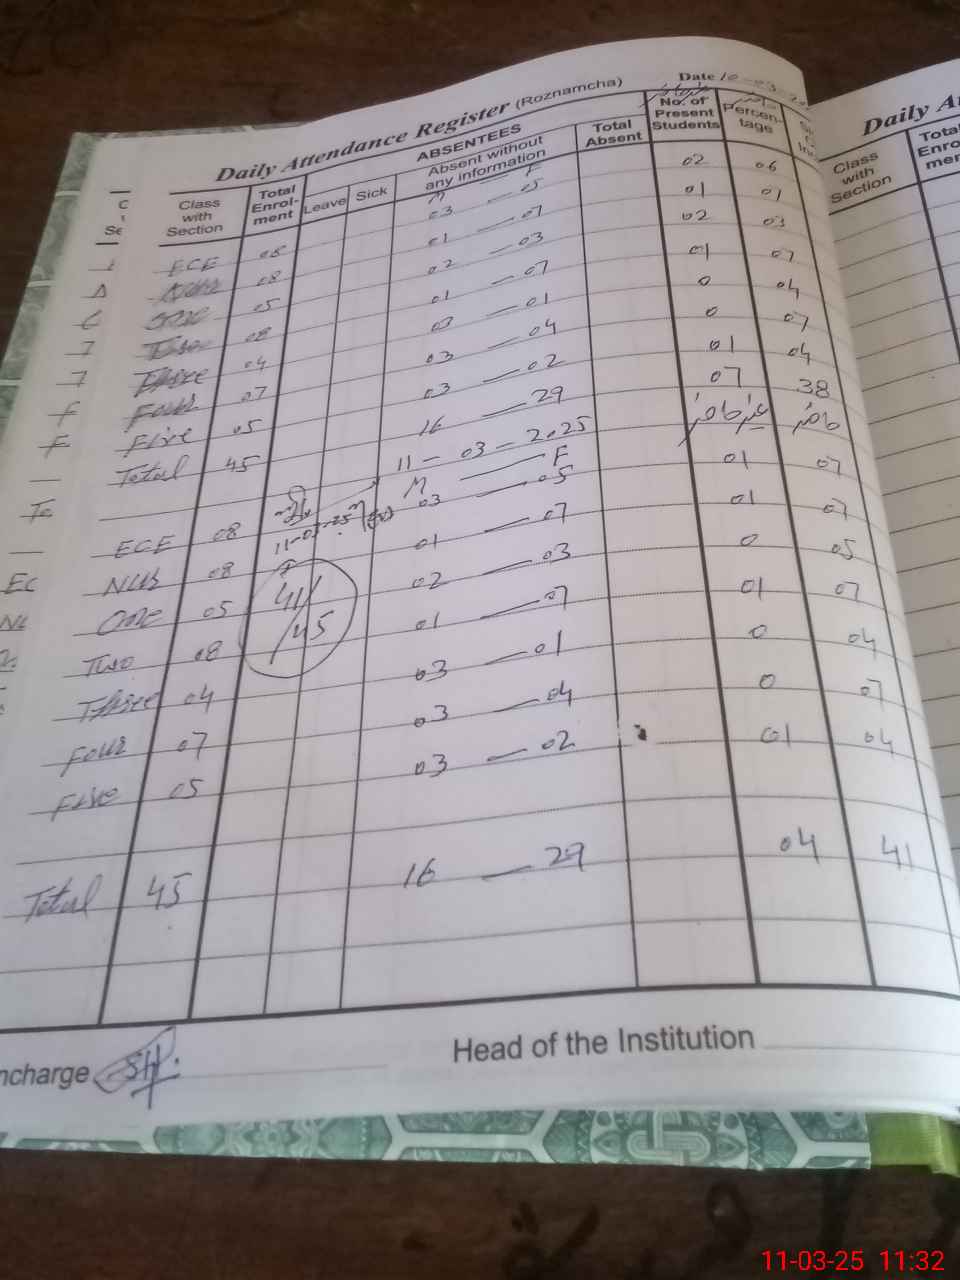 Daily Attendance Register (Roznamcha) Date 10-03-20
Class with Section Total Enrol-ment ABSENTEES Leave Sick Absent without any information Total Absent No. of Present Students Percen-tage
M — F
ECE 08 03 — 05 02 06
Nur 08 01 — 07 01 01
One 05 02 — 03 02 03
Two 08 01 — 07 01 07
Three 04 03 — 01 0 04
Four 07 03 — 04 0 07
Five 05 03 — 02 01 04
Total 45 16 — 29 07 38
11 - 03 - 2025 غیر حاضر حاضر
M — F
ECE 08 11-03-25 03 — 05 01 07
Nur 08 01 — 07 01 07
One 05 41/45 02 — 03 0 05
Two 08 01 — 07 01 07
Three 04 03 — 01 0 04
Four 07 03 — 04 0 07
Five 05 03 — 02 01 04
Total 45 16 — 29 04 41
ncharge SH. Head of the Institution
Daily A
Class with Section Total Enro men
11-03-25 11:32